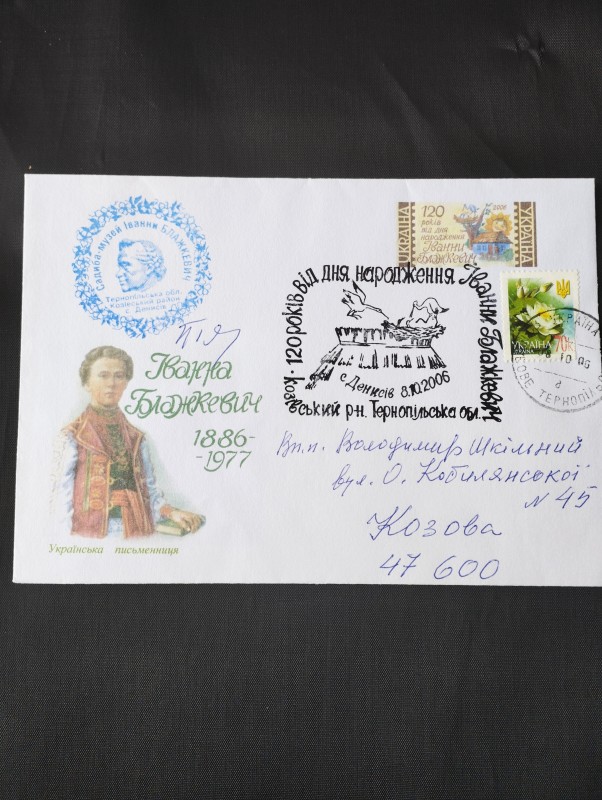 Садиба-музей Іванни БЛАЖКЕВИЧ
Тернопільська обл.
Козівський район
с. Денисів
УКРАЇНА
120
років
від дня
народження
Іванни
Блажкевич
2006
УКРАЇНА
120 років від дня народження Іванни Блажкевич
с Денисів 8.10.2006
козівський р-н. Тернопільська обл.
УКРАЇНА
70к
Іванна
Блажкевич
1886-
-1977
Українська письменниця
Вп.п. Володимир Шкільний
вул. О. Кобилянської
N 45
Козова
47 600